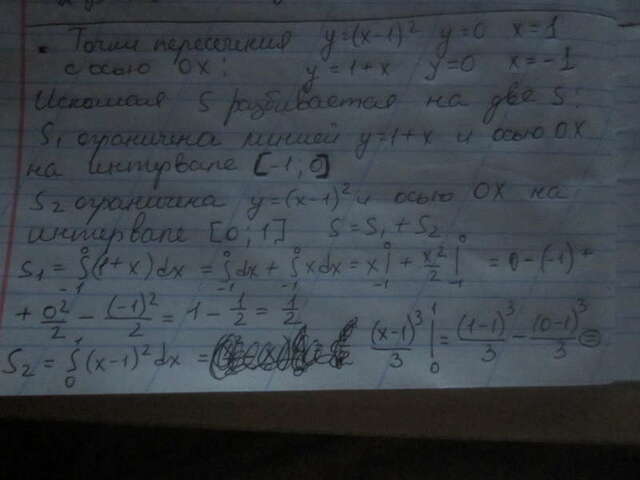 • Точки пересечения y=(x-1)² y=0 x=1
с осью OX: y=1+x y=0 x=-1
Искомая S разбивается на две S:
S₁ огранична линией y=1+x и осью OX
на интервале [-1; 0]
S₂ огранична y=(x-1)² и осью OX на
интервале [0; 1] S=S₁+S₂
S₁ = ∫₋₁⁰(1+x)dx = ∫₋₁⁰dx + ∫₋₁⁰xdx = x|₋₁⁰ + x²/2|₋₁⁰ = 0-(-1) +
+ 0²/2 - (-1)²/2 = 1 - 1/2 = 1/2
S₂ = ∫₀¹(x-1)²dx = (x-1)³/3|₀¹ = (1-1)³/3 - (0-1)³/3 =